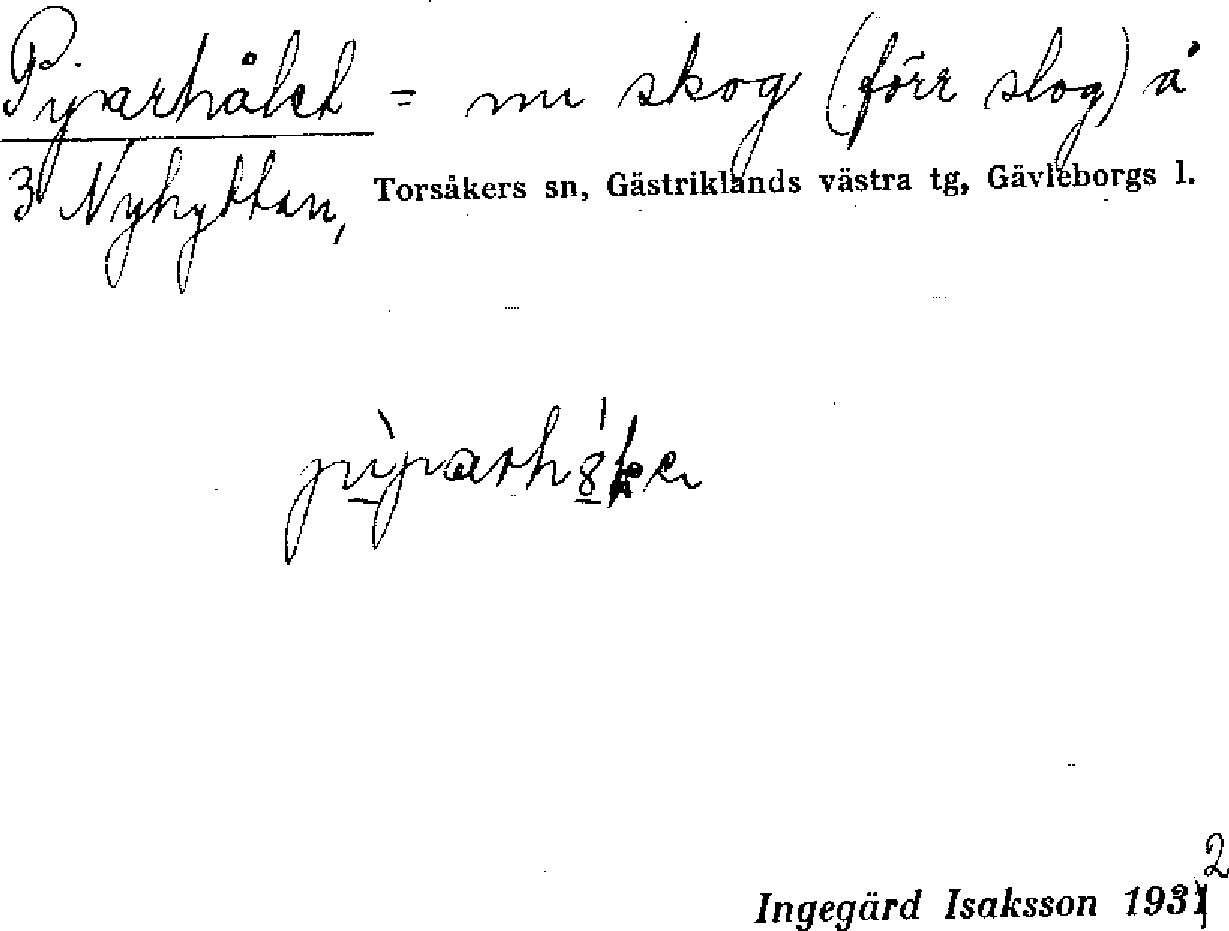 Piparhålet = nu skog (förr slog) å
3 Nyhyttan, Torsåkers sn, Gästriklands västra tg, Gävleborgs l.
Ingegärd Isaksson 1932